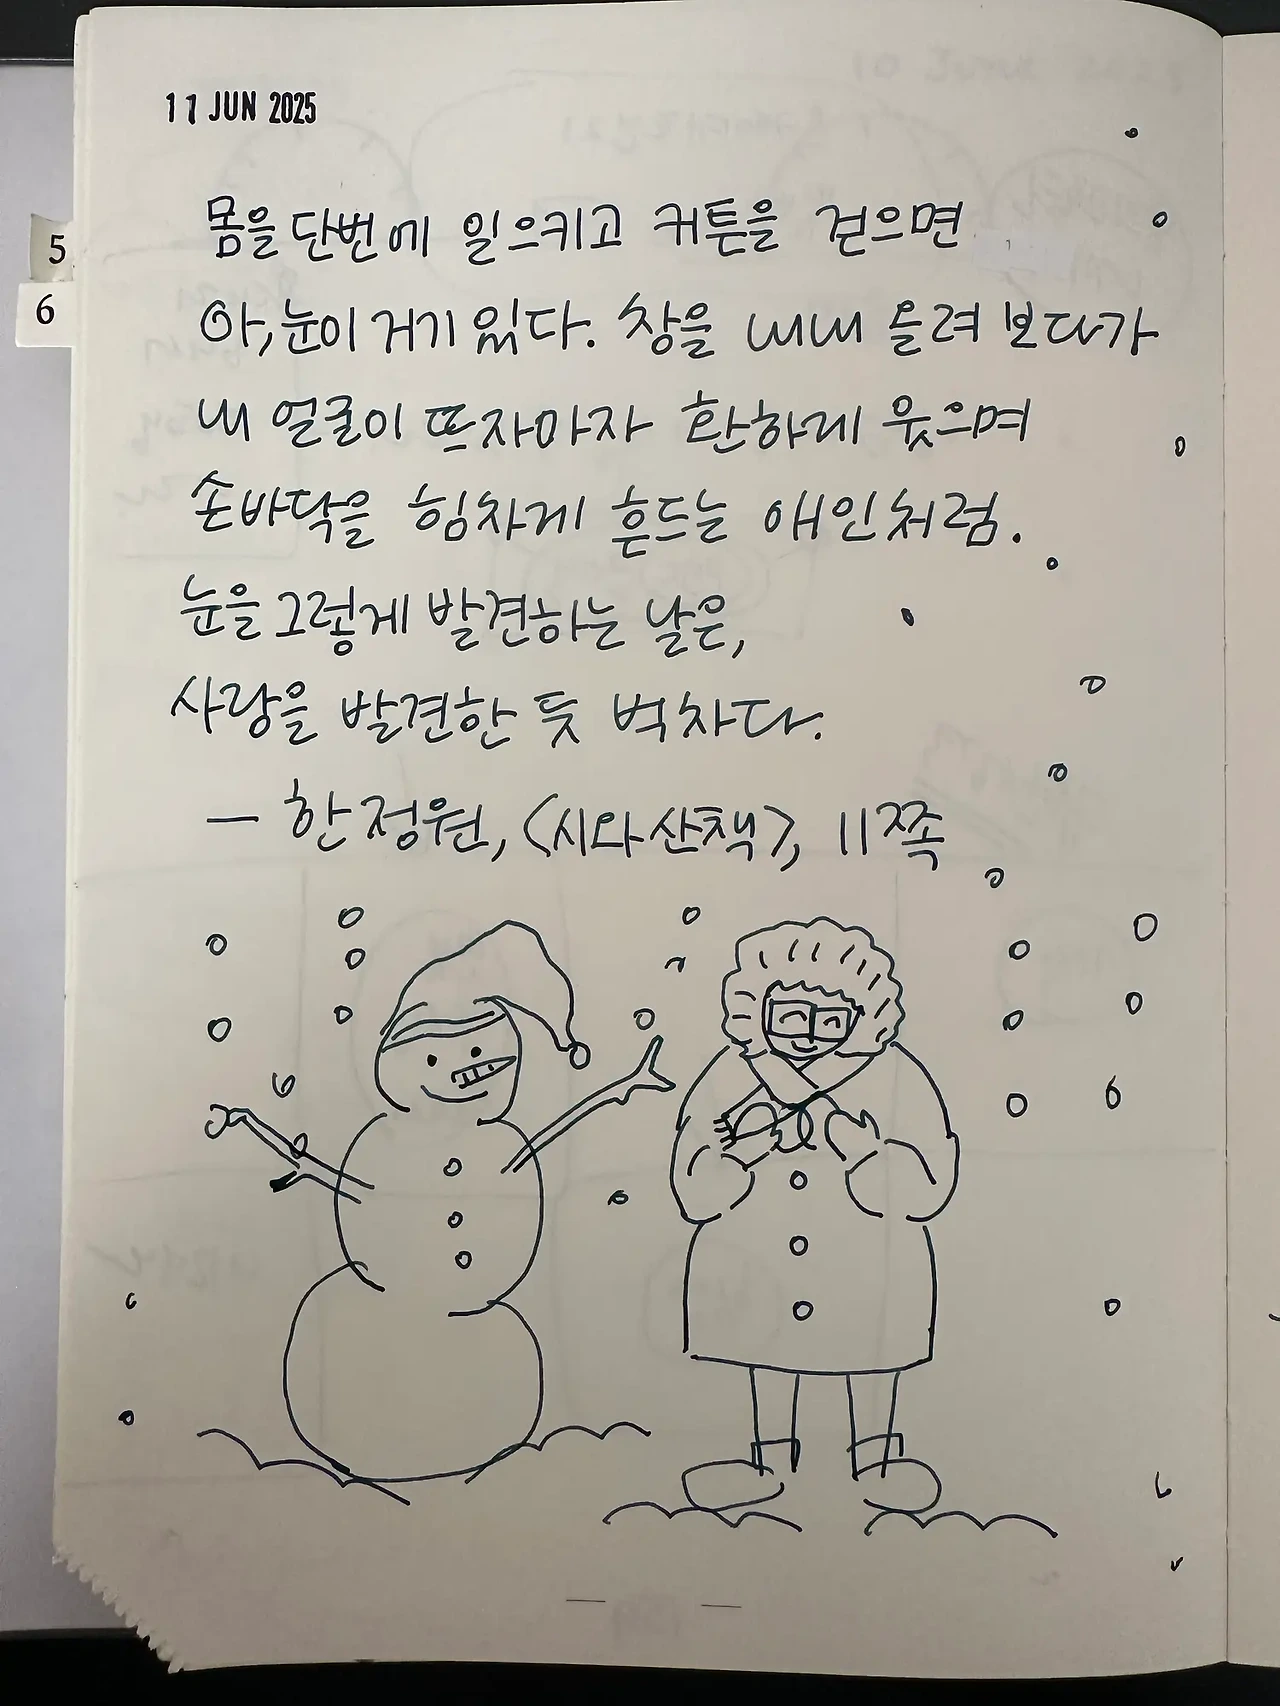 11 JUN 2025
5
6
몸을 단번에 일으키고 커튼을 걷으면
아, 눈이 거기 있다. 창을 내내 올려 보다가
내 얼굴이 뜨자마자 환하게 웃으며
손바닥을 힘차게 흔드는 애인처럼.
눈을 그렇게 발견하는 날은,
사랑을 발견한 듯 벅차다.
— 한정원, <시와 산책>, 11쪽